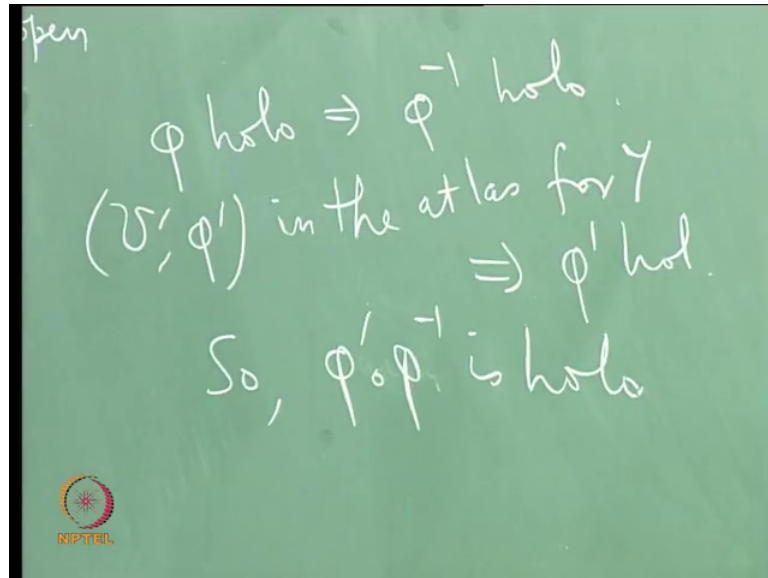 open
φ holo ⇒ φ⁻¹ holo.
(U', φ') in the atlas for Y
⇒ φ' hol.
So, φ'∘φ⁻¹ is holo
NPTEL